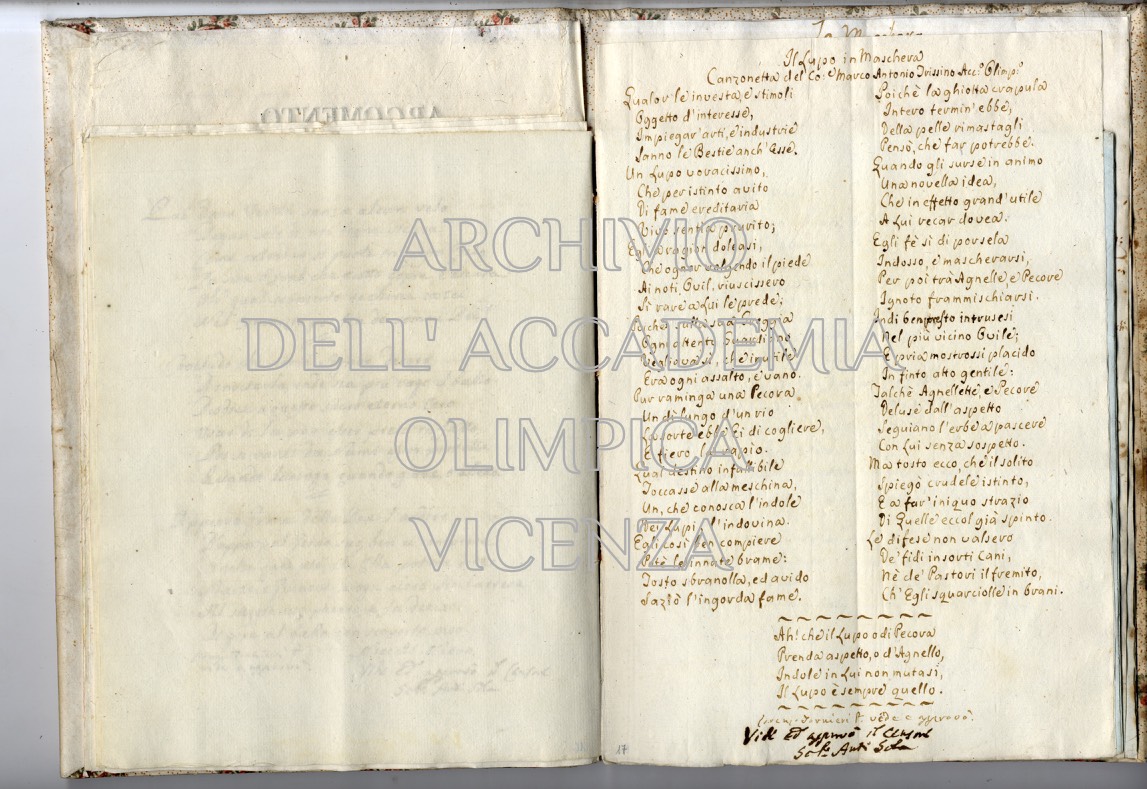 ARGOMENTO.
Il Lupo in Maschera
Canzonetta del Co: Marco Antonio Trissino Acc.º Olimp.º
Qualor le investa, e stimoli
Oggetto d'interesse,
Impiegar' arti, e industrie
Sanno le Bestie anch' Esse.
Un Lupo voracissimo,
Che per istinto avito
Di fame ereditaria
Vivo sentia prurito;
Egli a ragion doleasi,
Che ognor volgendo il piede
Ai noti Ovil, riuscissero
Sì rare a Lui le prede;
sulla sua
Ogni attento Guardiano
Vegliava sì, che inutile
Era ogni assalto, e vano.
Pur raminga una Pecora
Un dì lungo d'un rio
La sorte ebbe Ei di cogliere,
E fiero la rapio.
Qual destino infallibile
Toccasse alla meschina,
Un, che conosca l'indole
Dei Lupi, l'indovina.
Egli così ben compiere
Potè le innate brame:
Tosto sbranolla, ed avido
Saziò l'ingorda fame.
Poichè la ghiotta crapula
Intero termin' ebbe,
Della pelle rimastagli
Pensò, che far potrebbe.
Quando gli surse in animo
Una novella idea,
Che in effetto grand' utile
A Lui recar dovea.
Egli fè sì di porsela
Indosso, e mascherarsi,
Per poi trà Agnelle, e Pecore
Ignoto frammischiarsi.
Indi ben presto intrusesi
Nel più vicino Ovile;
E pria mostrossi placido
In finto atto gentile:
Talchè Agnellette, e Pecore
Deluse dall' aspetto
Seguiano l'erbe a pascere
Con Lui senza sospetto.
Ma tosto ecco, che il solito
Spiegò crudele istinto,
E a far' iniquo strazio
Di Quelle eccol già spinto.
Le difese non valsero
De' fidi insorti Cani,
Nè de' Pastori il fremito,
Ch' Egli squarciolle in brani.
Ah! che il Lupo o di Pecora
Prenda aspetto, o d'Agnello,
Indole in Lui non mutasi,
Il Lupo è sempre quello.
vide e approvò.
Vide ed approvò il Censore
17
ARCHIVIO
DELL' ACCADEMIA
OLIMPICA
VICENZA